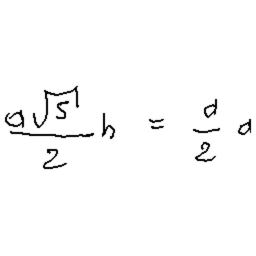 a√5/2 h = d/2 d